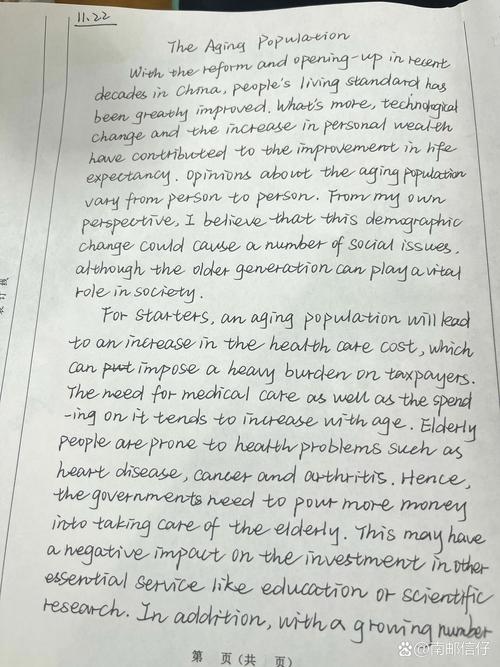 11.22
The Aging Population
With the reform and opening-up in recent
decades in China, people's living standard has
been greatly improved. What's more, technological
change and the increase in personal wealth
have contributed to the improvement in life
expectancy. Opinions about the aging population
vary from person to person. From my own
perspective, I believe that this demographic
change could cause a number of social issues,
although the older generation can play a vital
role in society.
For starters, an aging population will lead
to an increase in the health care cost, which
can put impose a heavy burden on taxpayers.
The need for medical care as well as the spend
-ing on it tends to increase with age. Elderly
people are prone to health problems such as
heart disease, cancer and arthritis. Hence,
the governments need to pour more money
into taking care of the elderly. This may have
a negative impact on the investment in other
essential service like education or scientific
research. In addition, with a growing number
第 页(共 页)
@南邮信仔
订线